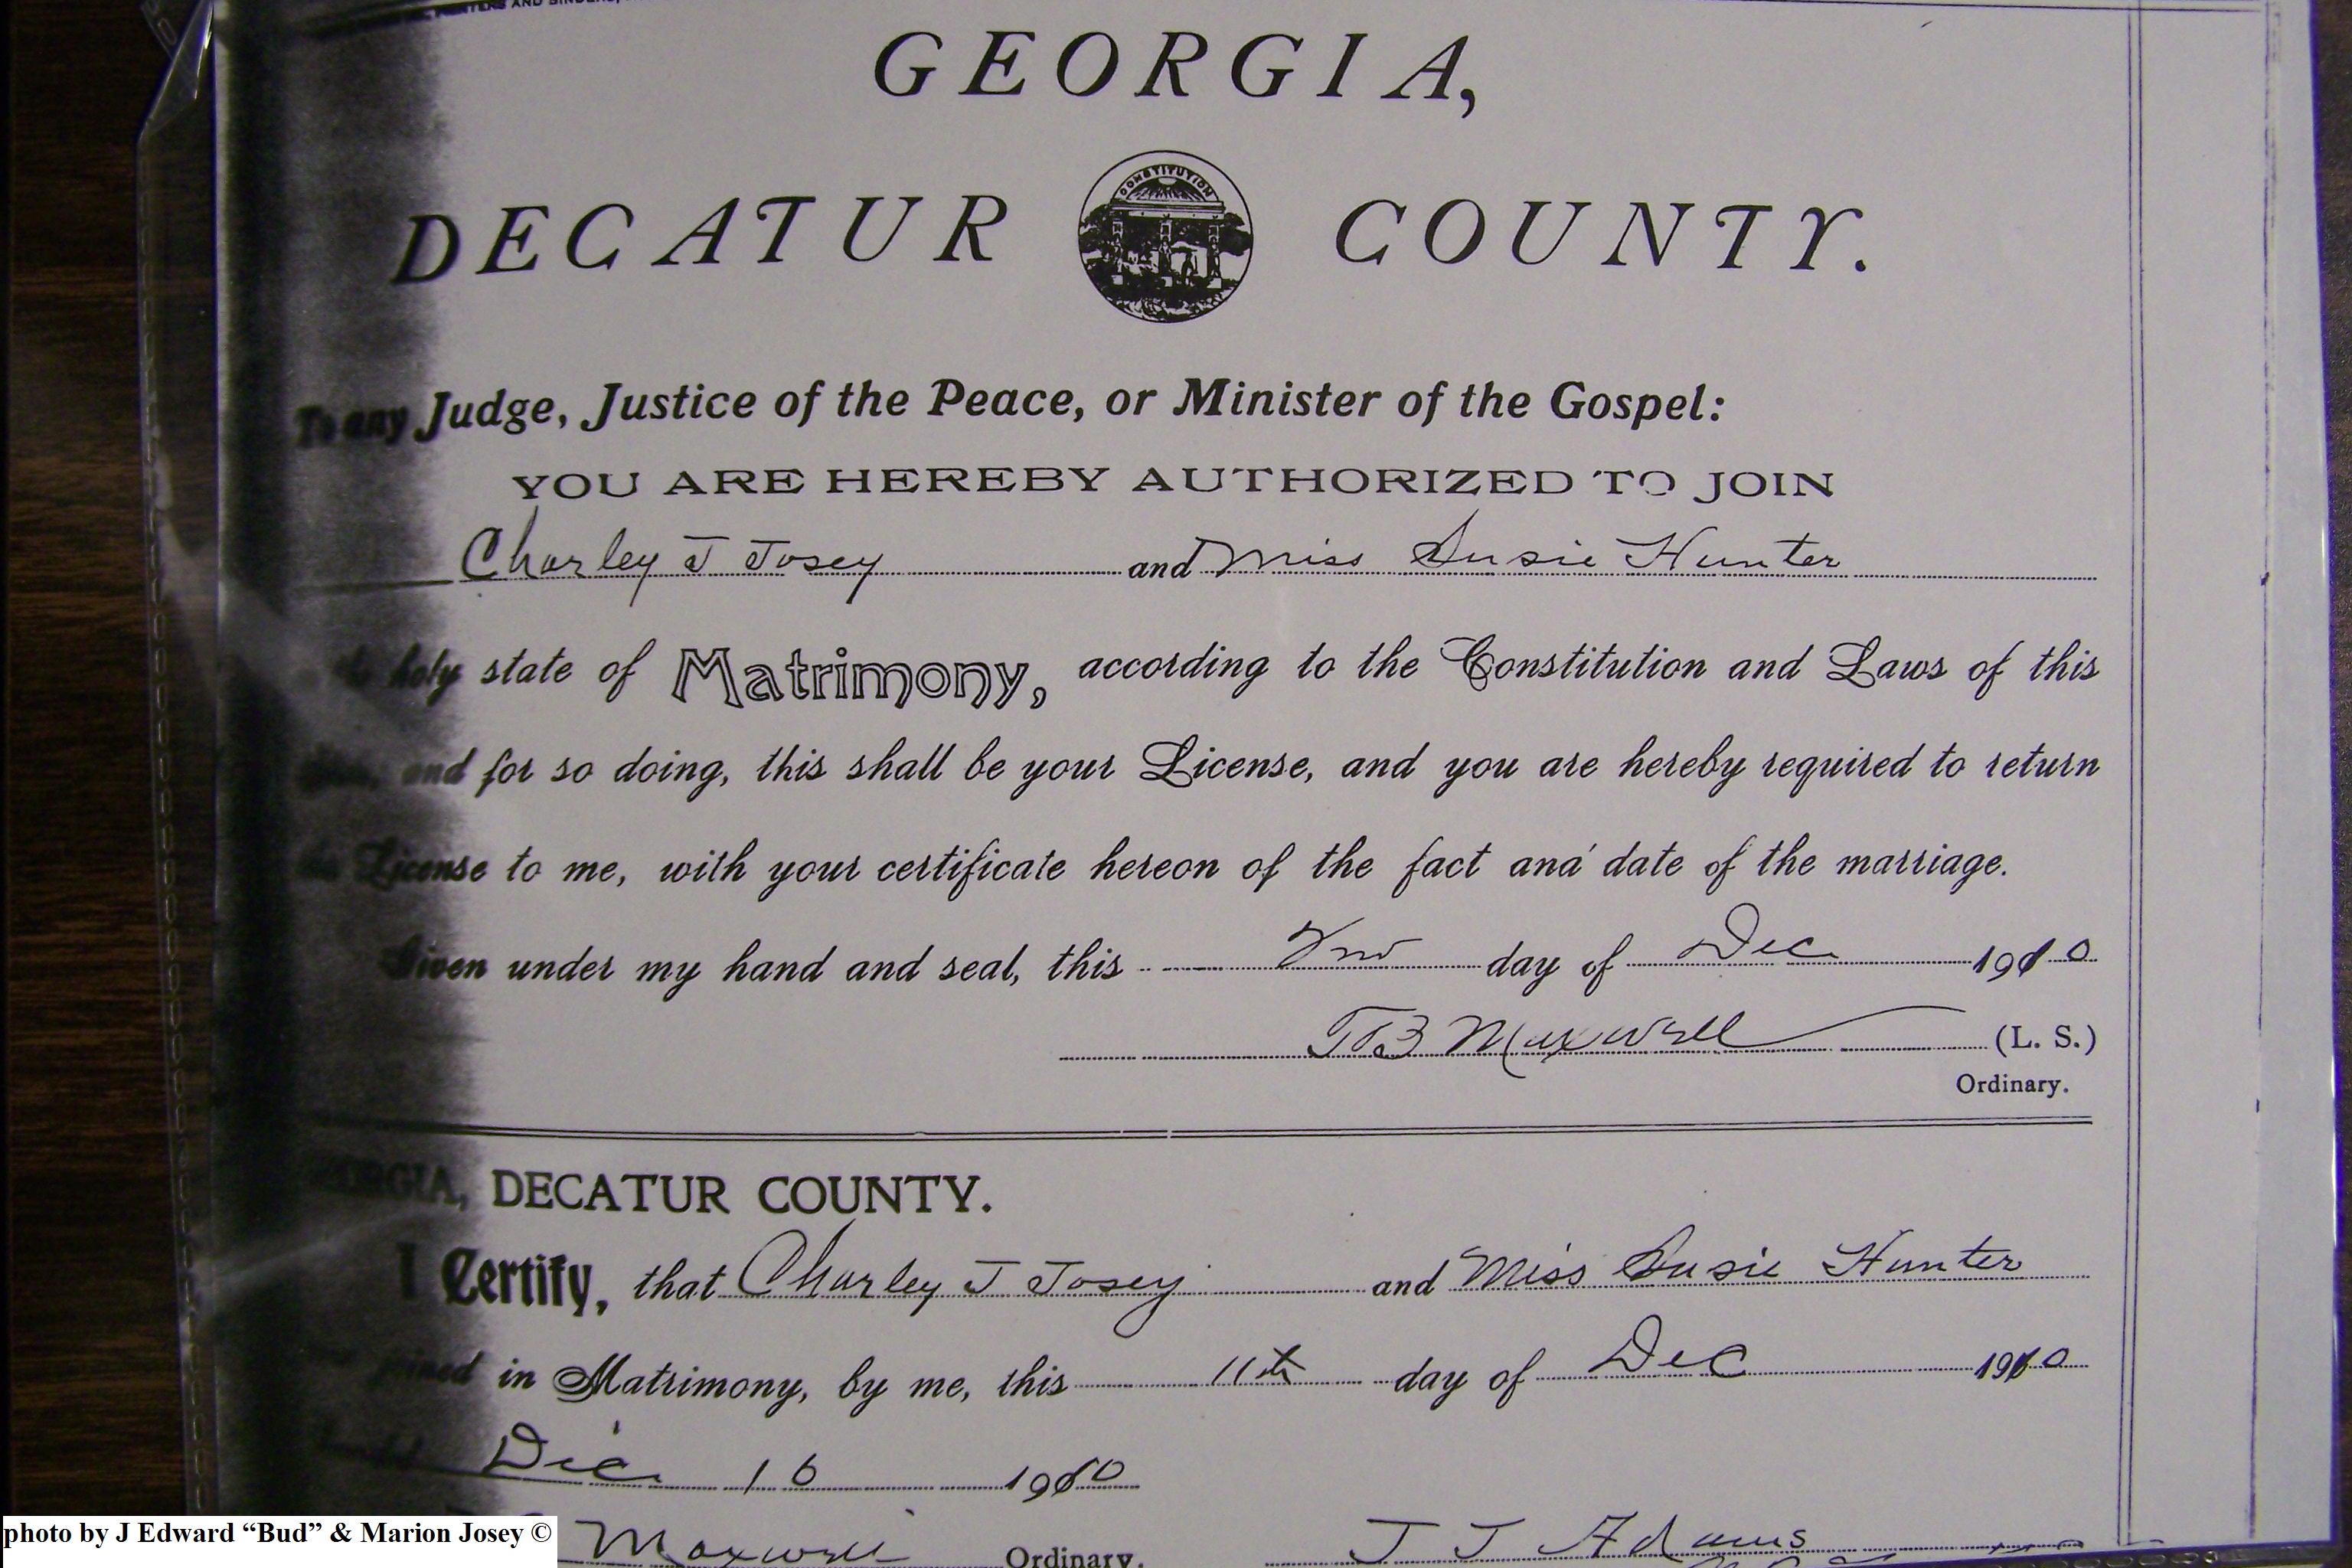 PRINTERS AND BINDERS,
GEORGIA,
DECATUR COUNTY.
CONSTITUTION
To any Judge, Justice of the Peace, or Minister of the Gospel:
YOU ARE HEREBY AUTHORIZED TO JOIN
Charley J Josey and Miss Susie Hunter
holy state of Matrimony, according to the Constitution and Laws of this
and for so doing, this shall be your License, and you are hereby required to return
License to me, with your certificate hereon of the fact and date of the marriage.
Given under my hand and seal, this 2nd day of Dec 1910
T B Maxwell (L. S.)
Ordinary.
GEORGIA, DECATUR COUNTY.
I Certify, that Charley J Josey and Miss Susie Hunter
joined in Matrimony, by me, this 11th day of Dec 1910
Dec 16 1910
Maxwell Ordinary. J J Adams
photo by J Edward “Bud” & Marion Josey ©